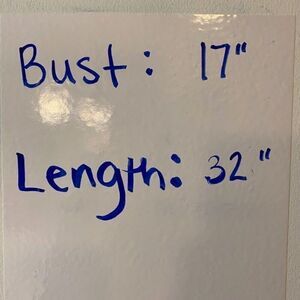 Bust: 17"
Length: 32"